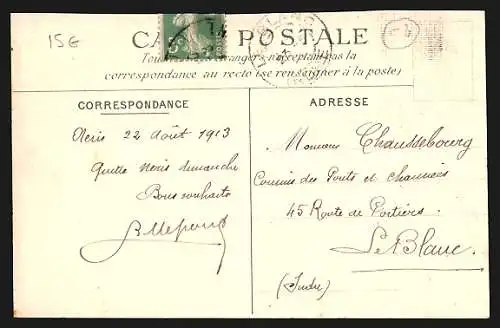 15€
CARTE POSTALE
Tous les pays étrangers n'acceptent pas la
correspondance au recto (se renseigner à la poste)
CORRESPONDANCE
ADRESSE
Néris 22 août 1913
Quitte Néris dimanche
Bons souhaits
Monsieur Chaussebourg
Commis des Ponts et chaussées
45 Route de Poitiers
Le Blanc
(Indre)